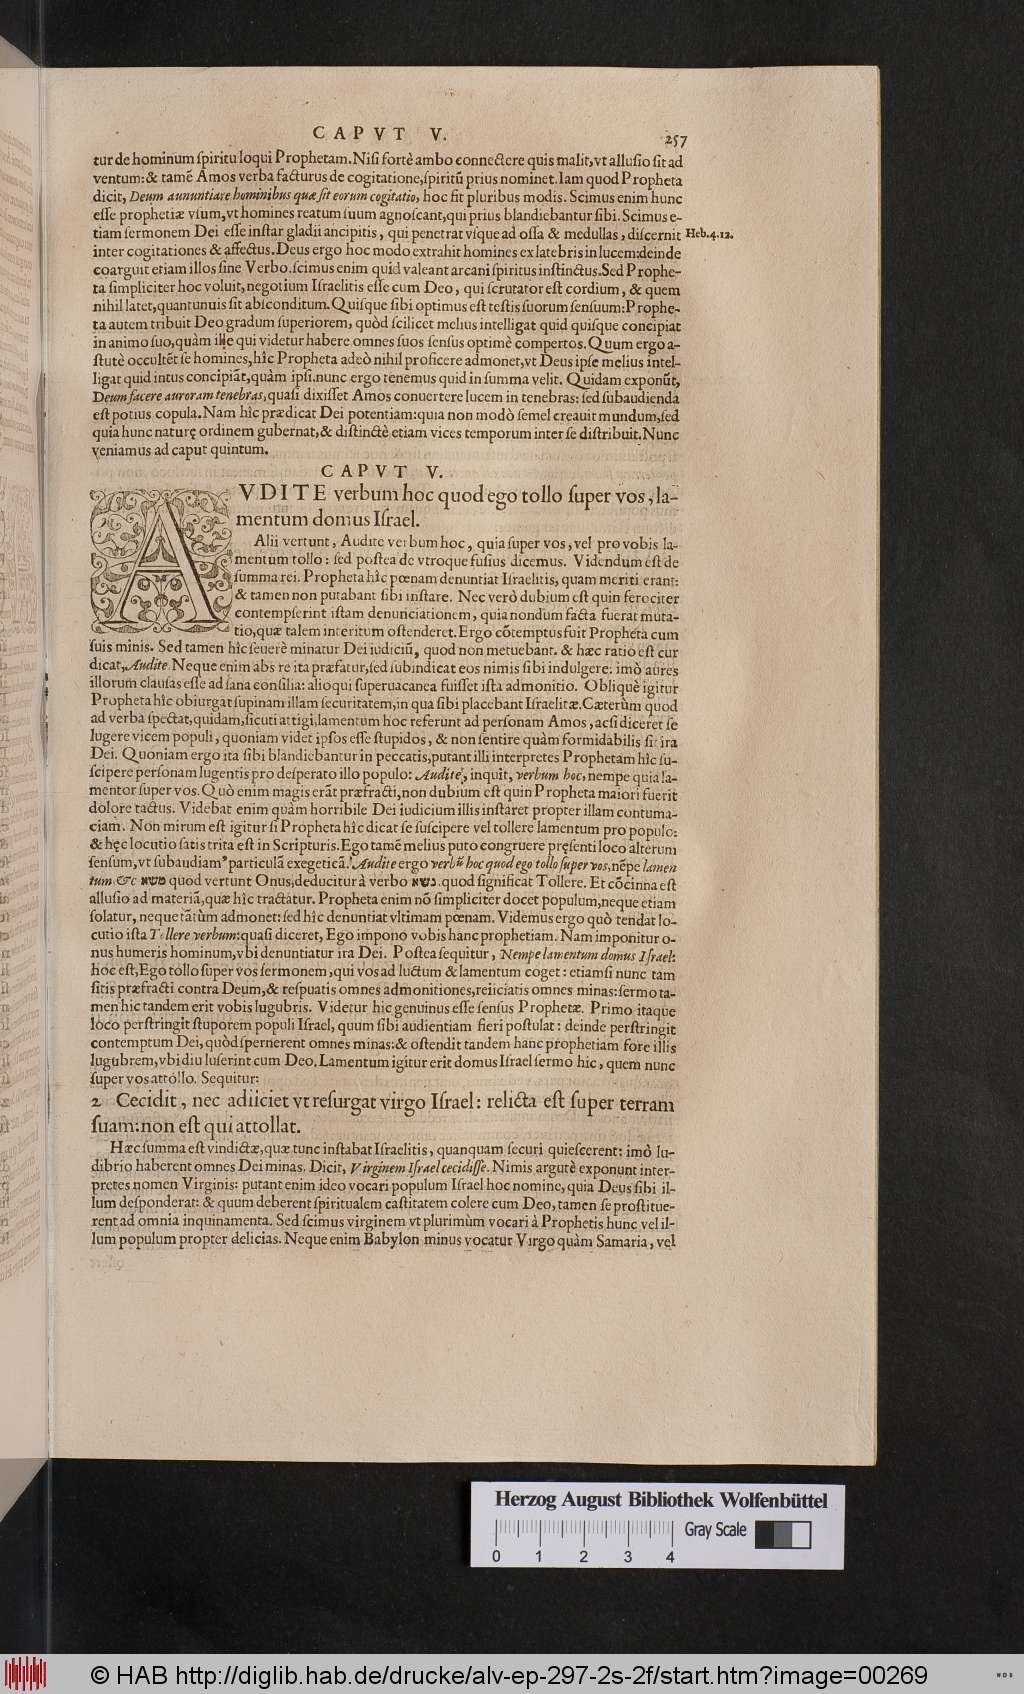 CAPVT V. 257
tur de hominum ſpiritu loqui Prophetam. Niſi fortè ambo connectere quis malit, vt alluſio ſit ad
ventum: & tamẽ Amos verba facturus de cogitatione, ſpiritũ prius nominet. Iam quod Propheta
dicit, Deum annuntiare hominibus quæ ſit eorum cogitatio, hoc fit pluribus modis. Scimus enim hunc
eſſe prophetiæ vſum, vt homines reatum ſuum agnoſcant, qui prius blandiebantur ſibi. Scimus e-
tiam ſermonem Dei eſſe inſtar gladii ancipitis, qui penetrat vſque ad oſſa & medullas, diſcernit Heb. 4.12.
inter cogitationes & affectus. Deus ergo hoc modo extrahit homines ex latebris in lucem: deinde
coarguit etiam illos ſine Verbo. ſcimus enim quid valeant arcani ſpiritus inſtinctus. Sed Prophe-
ta ſimpliciter hoc voluit, negotium Iſraelitis eſſe cum Deo, qui ſcrutator eſt cordium, & quem
nihil latet, quantunuis ſit abſconditum. Quiſque ſibi optimus eſt teſtis ſuorum ſenſuum: Prophe-
ta autem tribuit Deo gradum ſuperiorem, quòd ſcilicet melius intelligat quid quiſque concipiat
in animo ſuo, quàm ille qui videtur habere omnes ſuos ſenſus optimè compertos. Quum ergo a-
ſtutè occultẽt ſe homines, hîc Propheta adeò nihil proficere admonet, vt Deus ipſe melius intel-
ligat quid intus concipiãt, quàm ipſi. nunc ergo tenemus quid in ſumma velit. Quidam exponũt,
Deum facere auroram tenebras, quaſi dixiſſet Amos conuertere lucem in tenebras: ſed ſubaudienda
eſt potius copula. Nam hîc prædicat Dei potentiam: quia non modò ſemel creauit mundum, ſed
quia hunc naturę ordinem gubernat, & diſtinctè etiam vices temporum inter ſe diſtribuit. Nunc
veniamus ad caput quintum.
CAPVT V.
AVDITE verbum hoc quod ego tollo ſuper vos, la-
mentum domus Iſrael.
Alii vertunt, Audite verbum hoc, quia ſuper vos, vel pro vobis la-
mentum tollo: ſed poſtea de vtroque fuſius dicemus. Videndum eſt de
ſumma rei. Propheta hîc pœnam denuntiat Iſraelitis, quam meriti erant:
& tamen non putabant ſibi inſtare. Nec verò dubium eſt quin ferociter
contempſerint iſtam denunciationem, quia nondum facta fuerat muta-
tio, quæ talem interitum oſtenderet. Ergo cõtemptus fuit Propheta cum
ſuis minis. Sed tamen hîc ſeuerè minatur Dei iudiciũ, quod non metuebant. & hæc ratio eſt cur
dicat, Audite. Neque enim abs re ita præfatur, ſed ſubindicat eos nimis ſibi indulgere: imò aures
illorum clauſas eſſe ad ſana conſilia: alioqui ſuperuacanea fuiſſet iſta admonitio. Obliquè igitur
Propheta hîc obiurgat ſupinam illam ſecuritatem, in qua ſibi placebant Iſraelitæ. Cæterùm quod
ad verba ſpectat, quidam, ſicuti attigi, lamentum hoc referunt ad perſonam Amos, acſi diceret ſe
lugere vicem populi, quoniam videt ipſos eſſe ſtupidos, & non ſentire quàm formidabilis ſit ira
Dei. Quoniam ergo ita ſibi blandiebantur in peccatis, putant illi interpretes Prophetam hîc ſu-
ſcipere perſonam lugentis pro deſperato illo populo: Audite, inquit, verbum hoc, nempe quia la-
mentor ſuper vos. Quò enim magis erãt præfracti, non dubium eſt quin Propheta maiori fuerit
dolore tactus. Videbat enim quàm horribile Dei iudicium illis inſtaret propter illam contuma-
ciam. Non mirum eſt igitur ſi Propheta hîc dicat ſe ſuſcipere vel tollere lamentum pro populo:
& hęc locutio ſatis trita eſt in Scripturis. Ego tamẽ melius puto congruere pręſenti loco alterum
ſenſum, vt ſubaudiamº particulã exegeticã. Audite ergo verbũ hoc quod ego tollo ſuper vos, nẽpe lamen
tum. &c משא quod vertunt Onus, deducitur à verbo נשא. quod ſignificat Tollere. Et cõcinna eſt
alluſio ad materiã, quæ hîc tractatur. Propheta enim nõ ſimpliciter docet populum, neque etiam
ſolatur, neque tãtùm admonet: ſed hîc denuntiat vltimam pœnam. Videmus ergo quò tendat lo-
cutio iſta Tollere verbum: quaſi diceret, Ego impono vobis hanc prophetiam. Nam imponitur o-
nus humeris hominum, vbi denuntiatur ira Dei. Poſtea ſequitur, Nempe lamentum domus Iſrael:
hoc eſt, Ego tollo ſuper vos ſermonem, qui vos ad luctum & lamentum coget: etiamſi nunc tam
ſitis præfracti contra Deum, & reſpuatis omnes admonitiones, reiiciatis omnes minas: ſermo ta-
men hic tandem erit vobis lugubris. Videtur hic genuinus eſſe ſenſus Prophetæ. Primo itaque
loco perſtringit ſtuporem populi Iſrael, quum ſibi audientiam fieri poſtulat: deinde perſtringit
contemptum Dei, quòd ſpernerent omnes minas: & oſtendit tandem hanc prophetiam fore illis
lugubrem, vbi diu luſerint cum Deo. Lamentum igitur erit domus Iſrael ſermo hic, quem nunc
ſuper vos attollo. Sequitur:
2 Cecidit, nec adiiciet vt reſurgat virgo Iſrael: relicta eſt ſuper terram
ſuam: non eſt qui attollat.
Hæc ſumma eſt vindictæ, quæ tunc inſtabat Iſraelitis, quanquam ſecuri quieſcerent: imò lu-
dibrio haberent omnes Dei minas. Dicit, Virginem Iſrael cecidiſſe. Nimis argutè exponunt inter-
pretes nomen Virginis: putant enim ideo vocari populum Iſrael hoc nomine, quia Deus ſibi il-
lum deſponderat: & quum deberent ſpiritualem caſtitatem colere cum Deo, tamen ſe proſtitue-
rent ad omnia inquinamenta. Sed ſcimus virginem vt plurimùm vocari à Prophetis hunc vel il-
lum populum propter delicias. Neque enim Babylon minus vocatur Virgo quàm Samaria, vel
Herzog August Bibliothek Wolfenbüttel
Gray Scale
0 1 2 3 4
© HAB http://diglib.hab.de/drucke/alv-ep-297-2s-2f/start.htm?image=00269